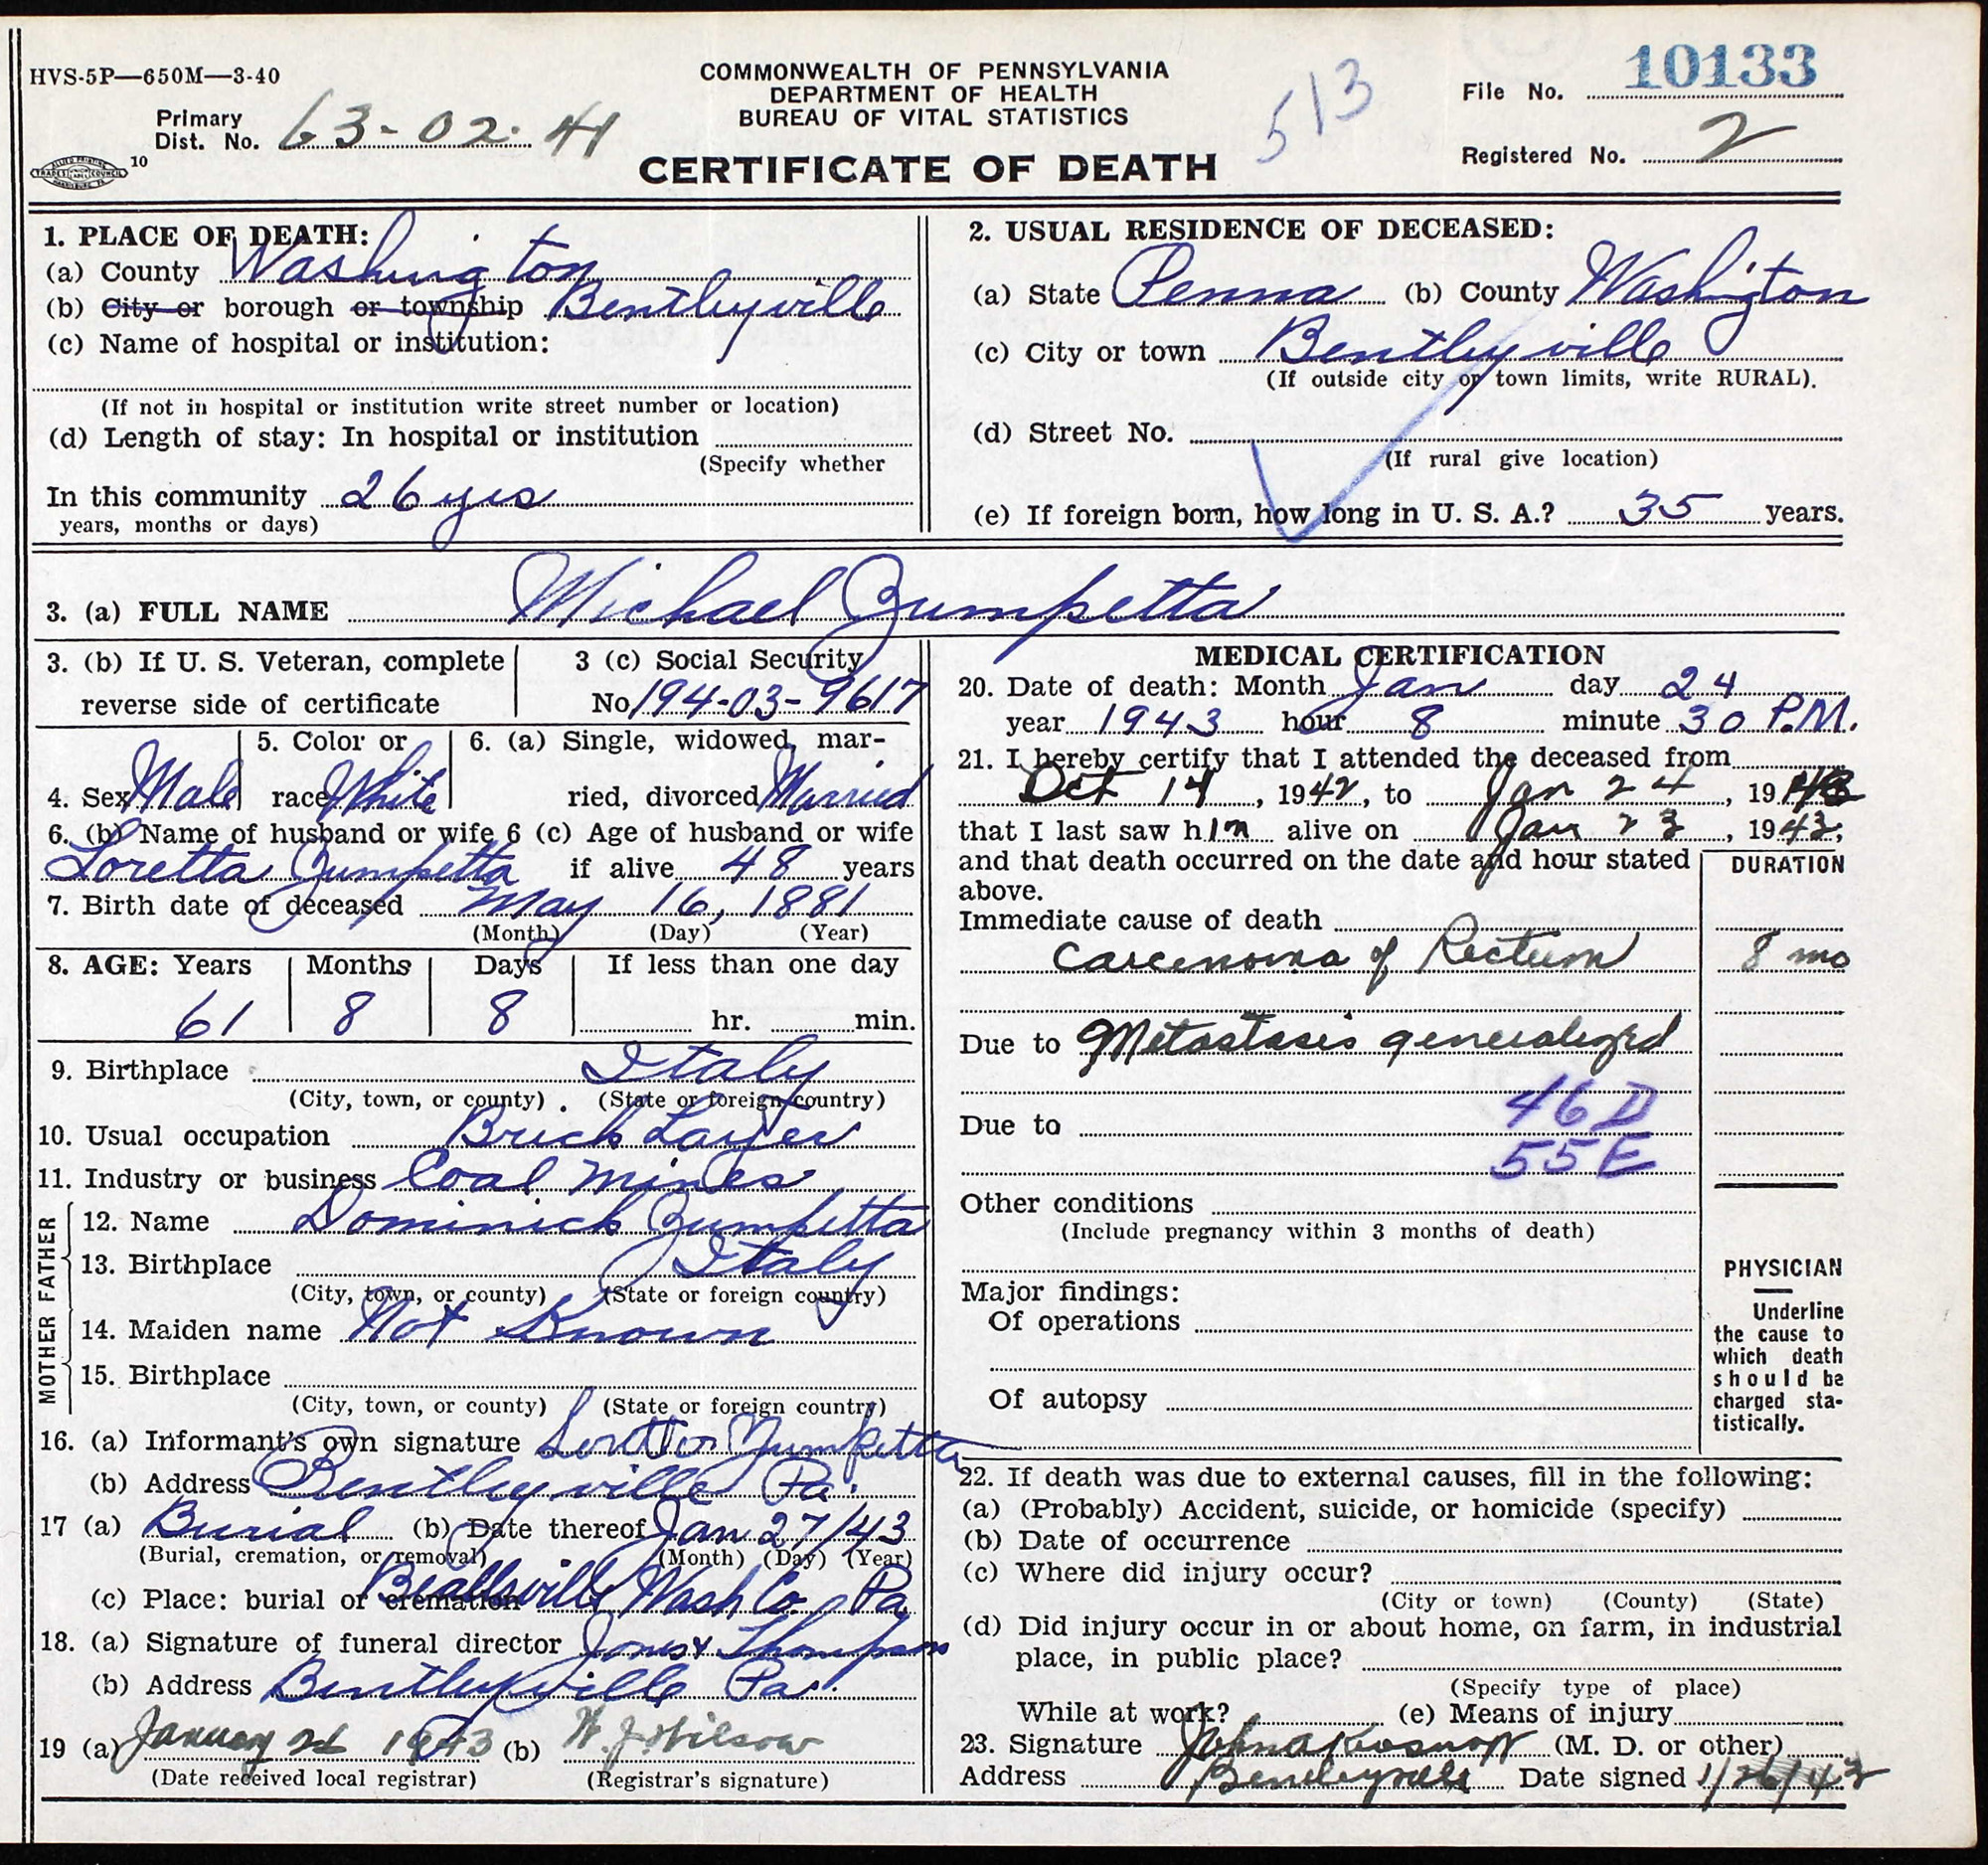 HVS-5P—650M—3-40
COMMONWEALTH OF PENNSYLVANIA
DEPARTMENT OF HEALTH
BUREAU OF VITAL STATISTICS
CERTIFICATE OF DEATH
513
File No. 10133
Registered No. 2
Primary
Dist. No. 63-02-41
10
1. PLACE OF DEATH:
(a) County Washington
(b) City or borough or township Bentleyville
(c) Name of hospital or institution:
(If not in hospital or institution write street number or location)
(d) Length of stay: In hospital or institution
(Specify whether
In this community 26 yrs
years, months or days)
2. USUAL RESIDENCE OF DECEASED:
(a) State Penna (b) County Washington
(c) City or town Bentleyville
(If outside city or town limits, write RURAL).
(d) Street No.
(If rural give location)
(e) If foreign born, how long in U. S. A.? 35 years.
3. (a) FULL NAME Michael Zumpetta
3. (b) If U. S. Veteran, complete
reverse side of certificate
3 (c) Social Security
No. 194-03-9617
4. Sex Male
5. Color or
race White
6. (a) Single, widowed, mar-
ried, divorced Married
6. (b) Name of husband or wife
Loretta Zumpetta
6 (c) Age of husband or wife
if alive 48 years
7. Birth date of deceased May 16, 1881
(Month) (Day) (Year)
8. AGE: Years Months Days If less than one day
61 8 8 hr. min.
9. Birthplace Italy
(City, town, or county) (State or foreign country)
10. Usual occupation Brick Layer
11. Industry or business Coal Mines
FATHER
12. Name Dominick Zumpetta
13. Birthplace Italy
(City, town, or county) (State or foreign country)
MOTHER
14. Maiden name Not Known
15. Birthplace
(City, town, or county) (State or foreign country)
16. (a) Informant's own signature Loretta Zumpetta
(b) Address Bentleyville Pa.
17 (a) Burial (b) Date thereof Jan 27/43
(Burial, cremation, or removal) (Month) (Day) (Year)
(c) Place: burial or cremation Beallsville Wash Co Pa
18. (a) Signature of funeral director Jones & Thompson
(b) Address Bentleyville Pa.
19 (a) January 26 1943 (b) W. J. Wilson
(Date received local registrar) (Registrar's signature)
MEDICAL CERTIFICATION
20. Date of death: Month Jan day 24
year 1943 hour 8 minute 30 P.M.
21. I hereby certify that I attended the deceased from
Oct 14, 1942, to Jan 24, 1943
that I last saw him alive on Jan 23, 1943,
and that death occurred on the date and hour stated
above.
DURATION
Immediate cause of death
Carcenoma of Rectum 8 mo
Due to Metastasis generalized
46 D
Due to
55 E
Other conditions
(Include pregnancy within 3 months of death)
Major findings:
Of operations
Of autopsy
PHYSICIAN
Underline
the cause to
which death
should be
charged sta-
tistically.
22. If death was due to external causes, fill in the following:
(a) (Probably) Accident, suicide, or homicide (specify)
(b) Date of occurrence
(c) Where did injury occur?
(City or town) (County) (State)
(d) Did injury occur in or about home, on farm, in industrial
place, in public place?
(Specify type of place)
While at work? (e) Means of injury
23. Signature John A (M. D. or other)
Address Bentleyville Date signed 1/26/43